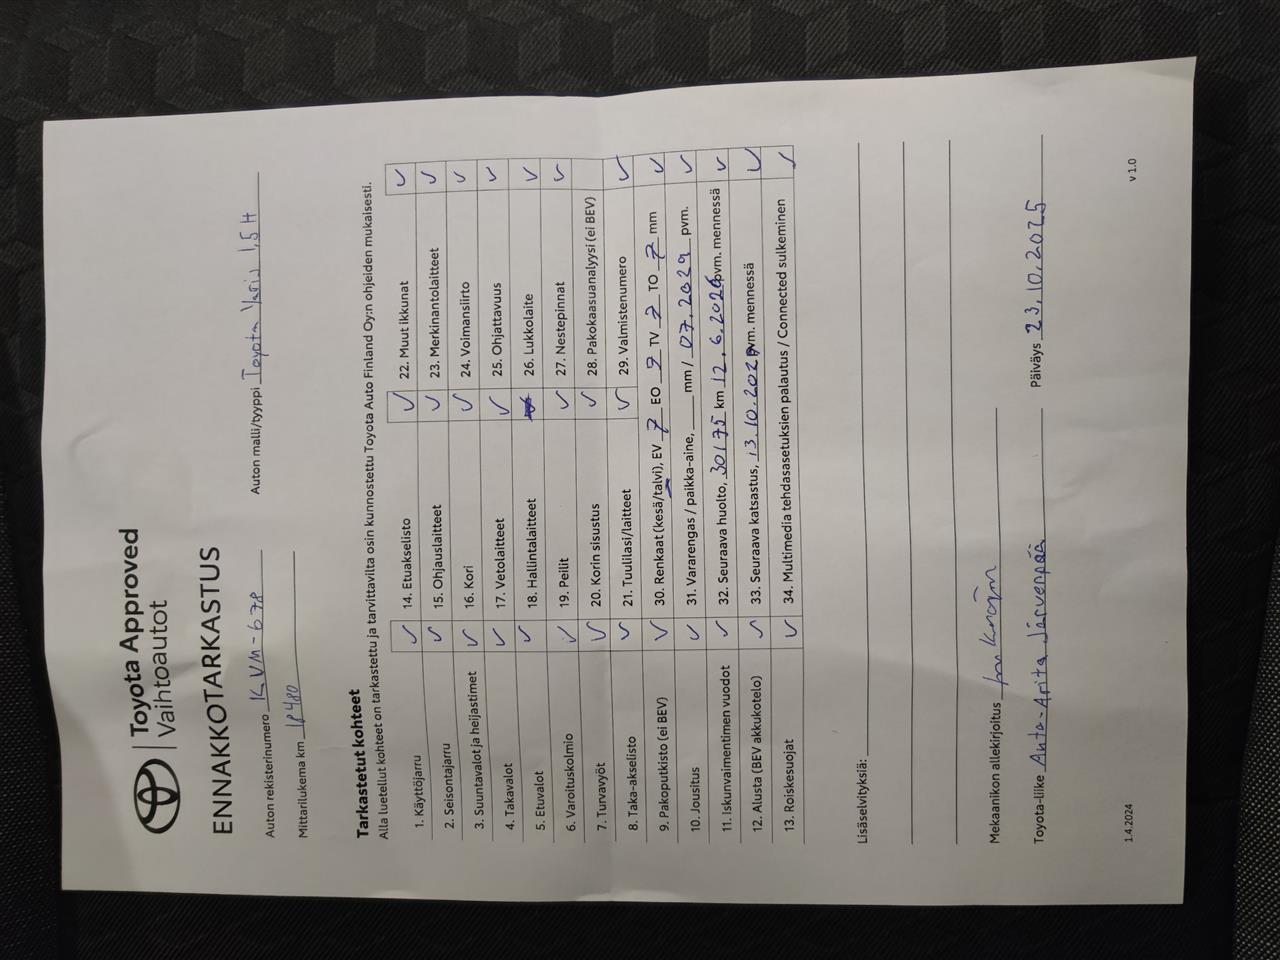 Toyota Approved
Vaihtoautot
ENNAKKOTARKASTUS
Auton rekisterinumero KVM-678 Auton malli/tyyppi Toyota Yaris 1,5 H
Mittarilukema km 18480
Tarkastetut kohteet
Alla luetellut kohteet on tarkastettu ja tarvittavilta osin kunnostettu Toyota Auto Finland Oy:n ohjeiden mukaisesti.
1. Käyttöjarru ✓ 14. Etuakselisto ✓ 22. Muut ikkunat ✓
2. Seisontajarru ✓ 15. Ohjauslaitteet ✓ 23. Merkinantolaitteet ✓
3. Suuntavalot ja heijastimet ✓ 16. Kori ✓ 24. Voimansiirto ✓
4. Takavalot ✓ 17. Vetolaitteet ✓ 25. Ohjattavuus ✓
5. Etuvalot ✓ 18. Hallintalaitteet 26. Lukkolaite ✓
6. Varoituskolmio ✓ 19. Peilit ✓ 27. Nestepinnat ✓
7. Turvavyöt ✓ 20. Korin sisustus ✓ 28. Pakokaasuanalyysi (ei BEV)
8. Taka-akselisto ✓ 21. Tuulilasi/laitteet ✓ 29. Valmistenumero ✓
9. Pakoputkisto (ei BEV) ✓ 30. Renkaat (kesä/talvi), EV 7 EO 7 TV 7 TO 7 mm ✓
10. Jousitus ✓ 31. Vararengas / paikka-aine, mm / 07.2029 pvm. ✓
11. Iskunvaimentimen vuodot ✓ 32. Seuraava huolto, 30175 km 12.6.2026 pvm. mennessä ✓
12. Alusta (BEV akkukotelo) ✓ 33. Seuraava katsastus, 13.10.202 pvm. mennessä ✓
13. Roiskesuojat ✓ 34. Multimedia tehdasasetuksien palautus / Connected sulkeminen ✓
Lisäselvityksiä:
Mekaanikon allekirjoitus
Toyota-liike Auta-Arita Järvenpää Päiväys 23.10.2025
1.4.2024 v 1.0